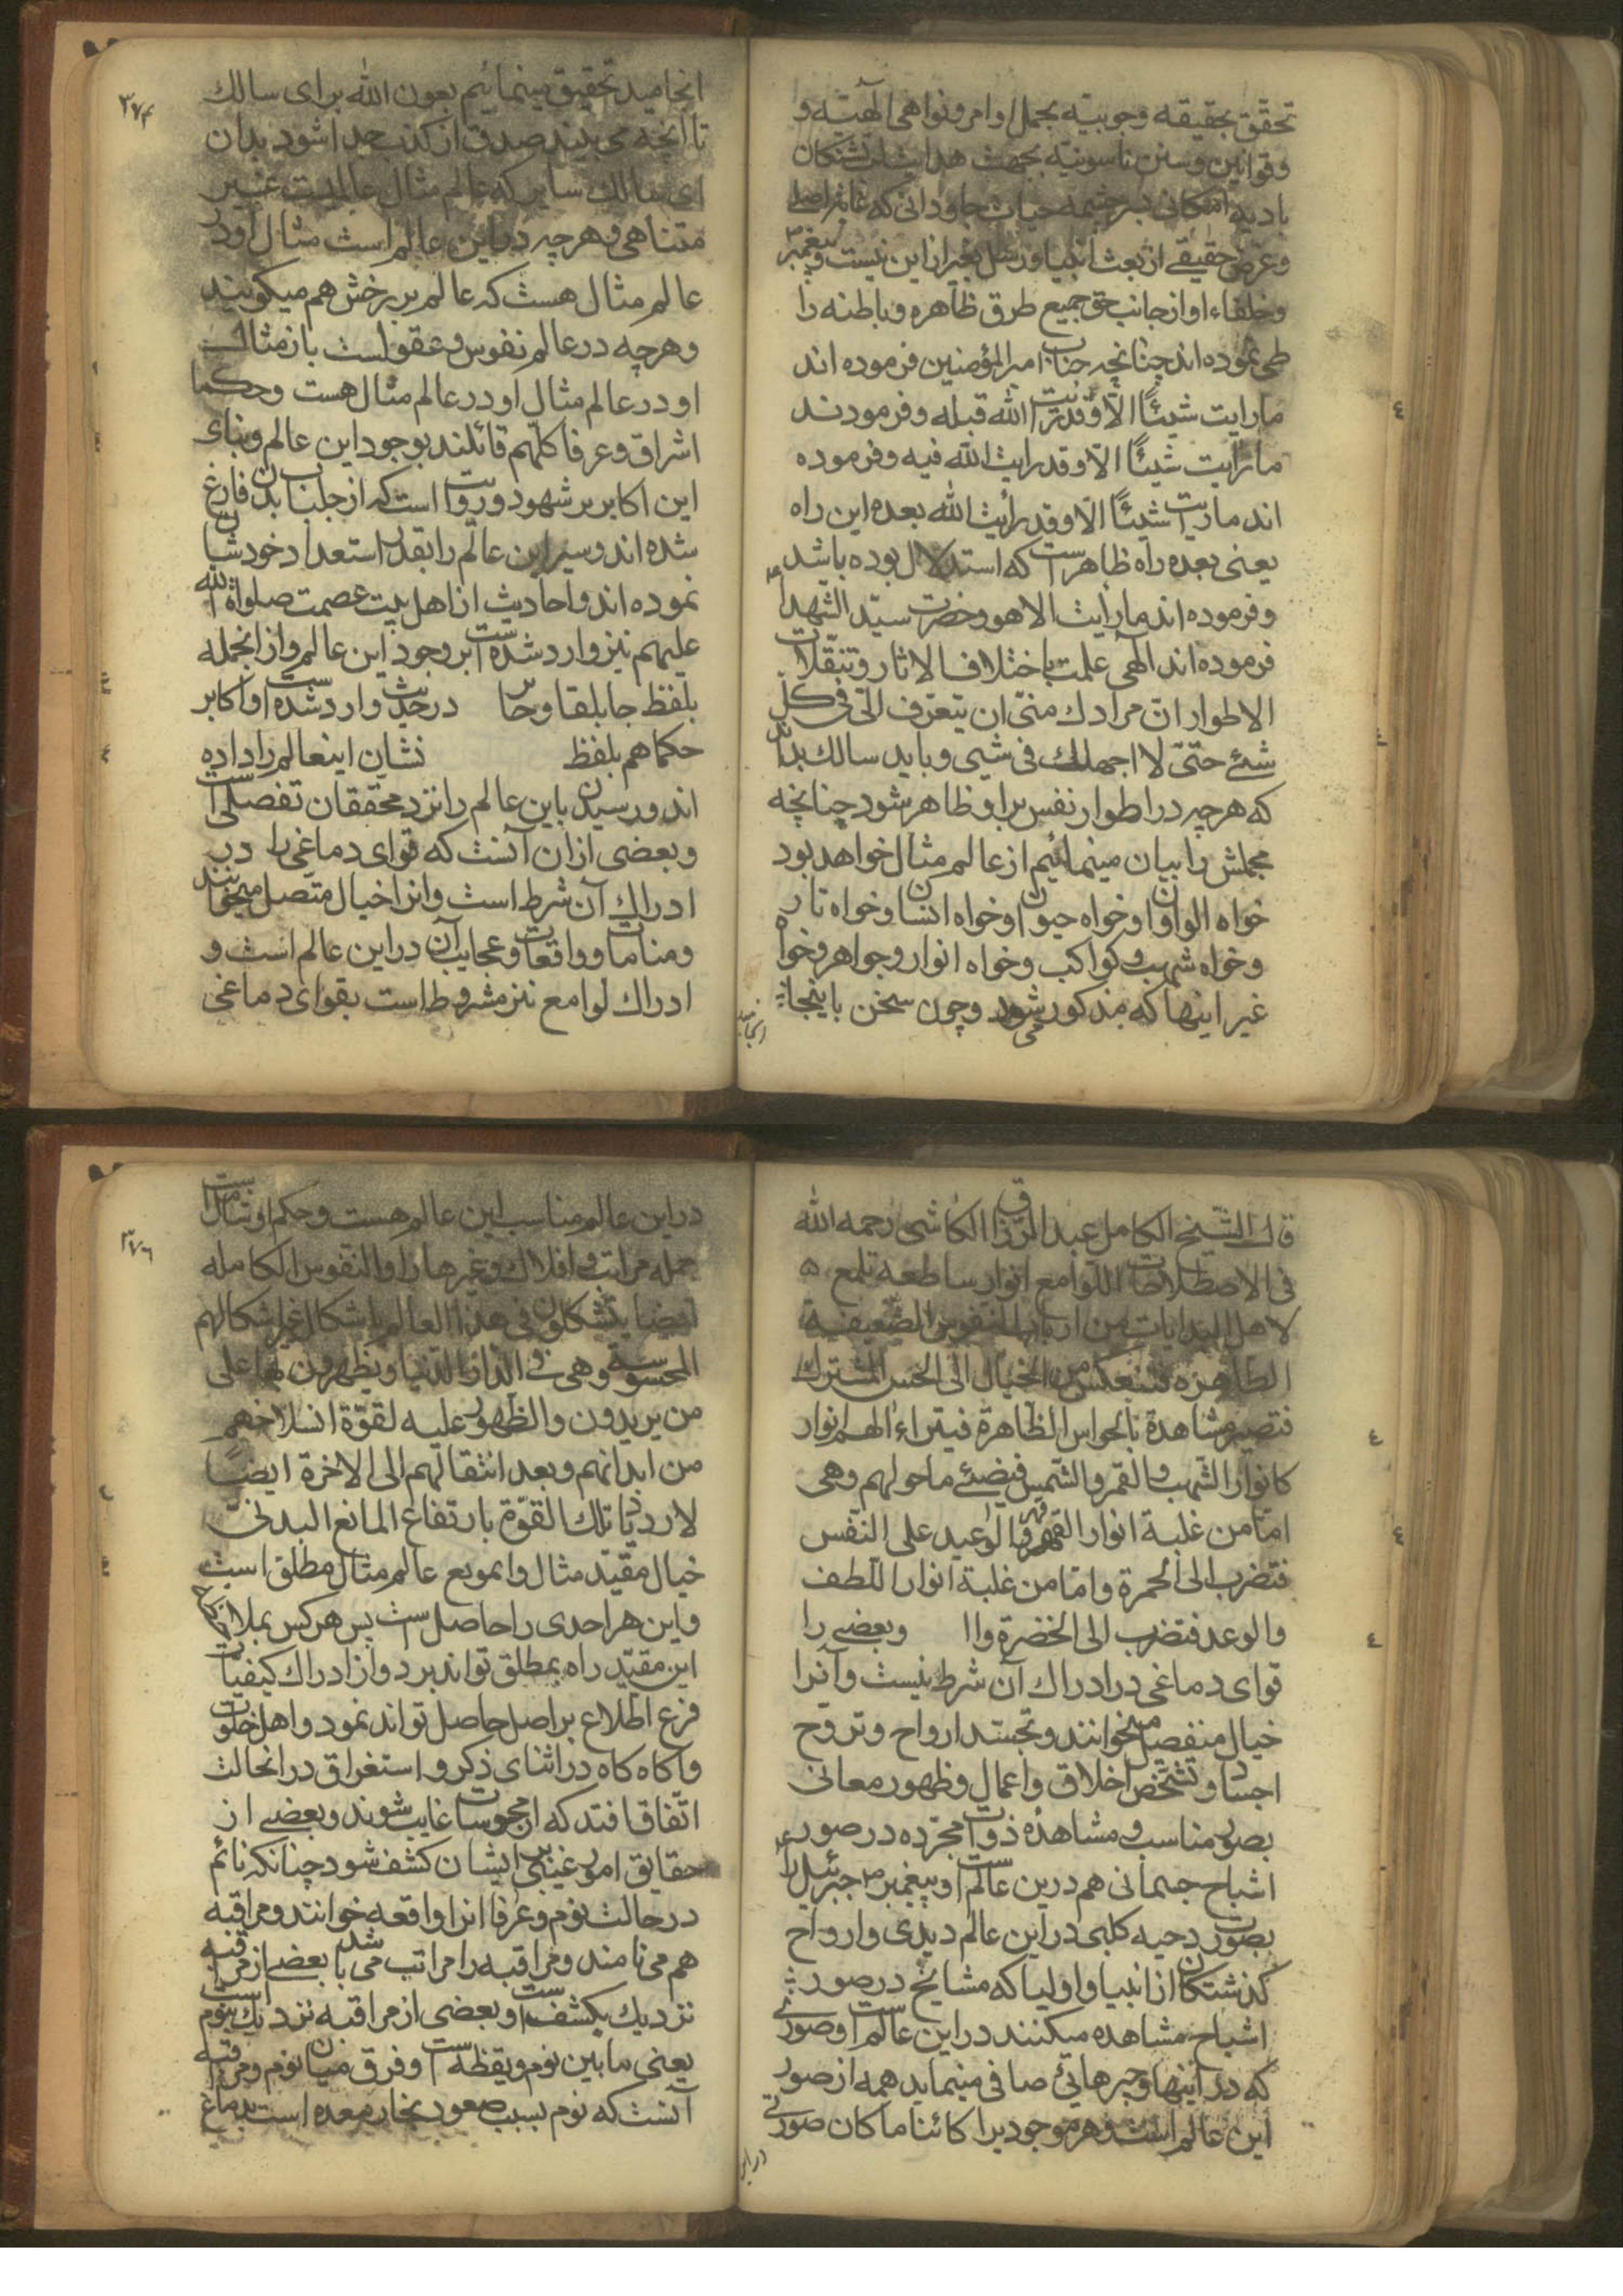 تحقق بحقیقه وجوبیّه بجمل اوامر ونواهی الهیّه و
وقوانین وسنن ناسوتیه بجهت هدایت لب تشنکان
بادیه امکانی بسرچشمه حیات جاودانی که غایة اصلی
وغرض حقیقے از بعث انبیا ورسل بغیر از این نیست وپیغمبر
وخلفاء او از جانب حق جمیع طرق ظاهره وباطنه را
طی نموده اند چنانچه جناب امیر المؤمنین فرموده اند
ما رایت شیئًا الّا وقد رایت الله قبله وفرمودند
ما رایت شیئًا الّا وقد رایت الله فیه وفرموده
اند ما رایت شیئًا الّا وقد رأیت الله بعده این راه
یعنی بعده راه ظاهر است که استدلال بوده باشد
وفرموده اند ما رأیت الا هو وحضرت سیّد الشهدا
فرموده اند الهی علمت باختلاف الاثار وتنقلات
الاطوار انّ مرادك منّی ان تتعرّف الیّ فی کلّ
شئ حتّی لا اجهلك فی شیی وباید سالك بداند
که هرچه در اطوار نفس بر او ظاهر شود چنانچه
مجملش را بیان مینمائیم از عالم مثال خواهد بود
خواه الوان وخواه حیوان وخواه انسان وخواه نار
وخواه شهب وکواکب وخواه انوار وجواهر وخواه
غیر اینها که مذکور می شود وچون سخن باینجا
انجامید
۳۷۴
انجامید تحقیق مینمائیم بعون الله برای سالك
تا آنچه می بیند صدق از کذب جدا شود بدان
ای سالك سایر که عالم مثال عالمیست غیر
متناهی وهرچه در این عالم است مثال او در
عالم مثال هست که عالم برزخش هم میکویند
وهرچه در عالم نفوس وعقول است باز مثال
او در عالم مثال او در عالم مثال هست وحکما
اشراق وعرفا کلّهم قائلند بوجود این عالم وبنای
این اکابر بر شهود ورویت است که از جلباب بدن فارغ
شده اند وسیر این عالم را بقدر استعداد خودشان
نموده اند واحادیث از اهل بیت عصمت صلواة الله
علیهم نیز وارد شده است بر وجود این عالم واز انجمله
بلفظ جابلقا وجابر در حدیث وارد شده است واکابر
حکما هم بلفظ نشان اینعالم را داده
اند ورسیدن باین عالم را نزد محققان تفصیلی است
وبعضی از ان آنست که قوای دماغی را در
ادراك آن شرط است وانرا خیال متّصل میخوانند
ومنامات وواقعات وعجایب آن در این عالم است و
ادراك لوامع نیز مشروط است بقوای دماغی
قال الشّیخ الکامل عبد الرّزاق الکاشی رحمه الله
فی الاصطلاحات اللّوامع انوار ساطعه تلمع
لاهل البدایات من ارباب النفوس الضعیفة
الطاهره فتنعکس من الخیال الی الحس المشترك
فتصیر مشاهدة بالحواس الظاهرة فیتراءا لهم انوار
کانوار الشهب والقمر والشّمس فیضئ ما حولهم وهی
امّا من غلبة انوار القهر والوعید علی النّفس
فتضرب الی الحمرة وامّا من غلبة انوار اللّطف
والوعد فتضرب الی الخضرة واا وبعضے را
قوای دماغی در ادراك آن شرط نیست وآنرا
خیال منفصل میخوانند وتجسّد ارواح وتروح
اجساد وتشخّص اخلاق واعمال وظهور معانی
بصور مناسب ومشاهدۀ ذوات مجرّده در صور
اشباح جسمانی هم درین عالم است وپیغمبر جبرئیل را
بصورت دحیه کلبی در این عالم دیدی وارواح
کذشتکان از انبیا واولیا که مشایخ در صور
اشباح مشاهده میکنند در این عالم است وصورتی
که در اینها وچیرهائی صافی مینماید همه از صور
این عالم است وهر موجودیرا کائنا ما کان صورتی
در این
۳۷٦
در این عالم مناسب این عالم هست وحکم او شامل است
جمله مراتب افلاك وغیرها را والنّفوس الکامله
ایضا یتشکلون فی هذا العالم باشکال غیر اشکالهم
المحسوسة وهی فی الدار الدّنیا ویظهرون بها علی
من یریدون والظهور علیه لقوّة انسلاخهم
من ابدانهم وبعد انتقالهم الی الاخرة ایضًا
لازدیاد تلك القوّة بارتفاع المانع البدنیّ
خیال مقیّد مثال وانموبع عالم مثال مطلق است
واین هر احدی را حاصل است پس هرکس بملاحظه
این مقیّد راه بمطلق تواند برد واز ادراك کیفیّات
فرع اطّلاع بر اصل حاصل تواند نمود واهل خلوت
را کاه کاه در اثنای ذکر واستغراق در انحالت
اتّفاق افتد که از محسوسات غایب شوند وبعضے از
حقایق امور غیبی بر ایشان کشف شود چنانکه نائم
در حالت نوم وعرفا انرا واقعه خوانند ومراقبه
هم می نامند ومراقبه را مراتب می باشد بعضے از مراقبه
نزدیك بکشف است وبعضی از مراقبه نزدیك بنوم است
یعنی ما بین نوم ویقظه است وفرق میان نوم ومراقبه
آنست که نوم بسبب صعود بخار معده است بدماغ